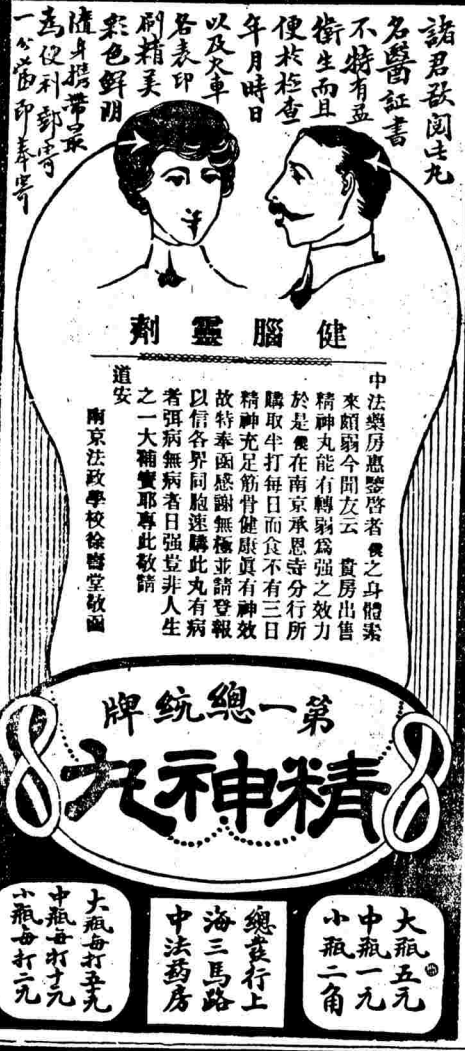 諸君欲閱此丸
名醫証書
不特有益
衛生而且
便於檢查
年月時日
以及火車
各表印
刷精美
彩色鮮明
隨身攜帶最
為便利郵寄
一分當即奉寄
健腦靈劑
中法藥房惠鑒啓者僕之身體素
來頗弱今聞友云 貴房出售
精神丸能有轉弱爲强之效力
於是僕在南京承恩寺分行所
購取半打每日而食不有三日
精神充足筋骨健康眞有神效
故特奉函感謝無極並請登報
以信各界同胞速購此丸有病
者弭病無病者日强豈非人生
之一大補寶耶專此敬請
道安
南京法政學校徐醫堂敬函
第一總統牌
精神丸
大瓶五元
中瓶一元
小瓶二角
總發行上
海三馬路
中法葯房
大瓶每打五十元
中瓶每打十元
小瓶每打二元